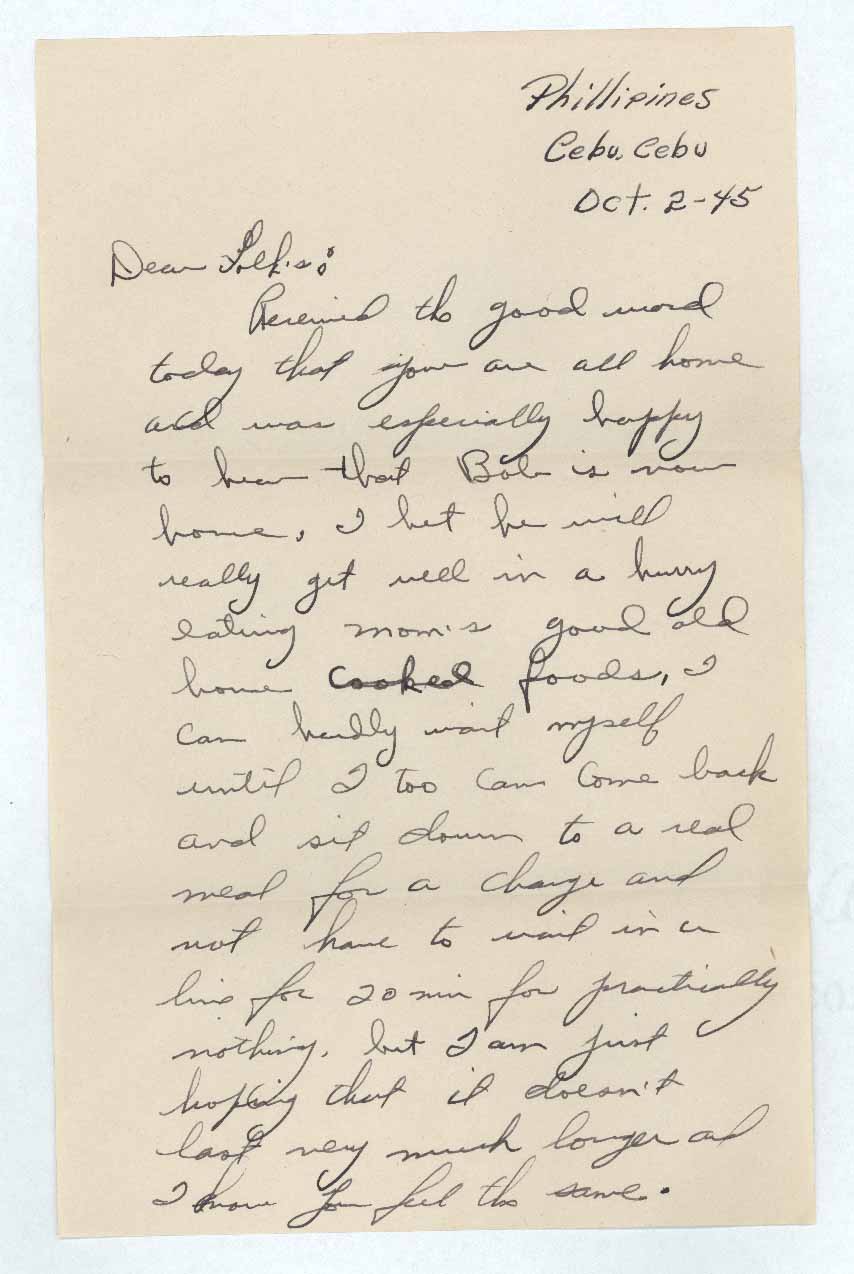 Phillipines
Cebu, Cebu
Oct. 2-45
Dear Folk's:
Received the good word
today that you are all home
and was especially happy
to hear that Bob is now
home, I bet he will
really get well in a hurry
eating mom's good old
home cooked foods, I
can hardly wait myself
until I too can come back
and sit down to a real
meal for a change and
not have to wait in a
line for 20 min for practically
nothing, but I am just
hoping that it doesn't
last very much longer and
I know you feel the same.